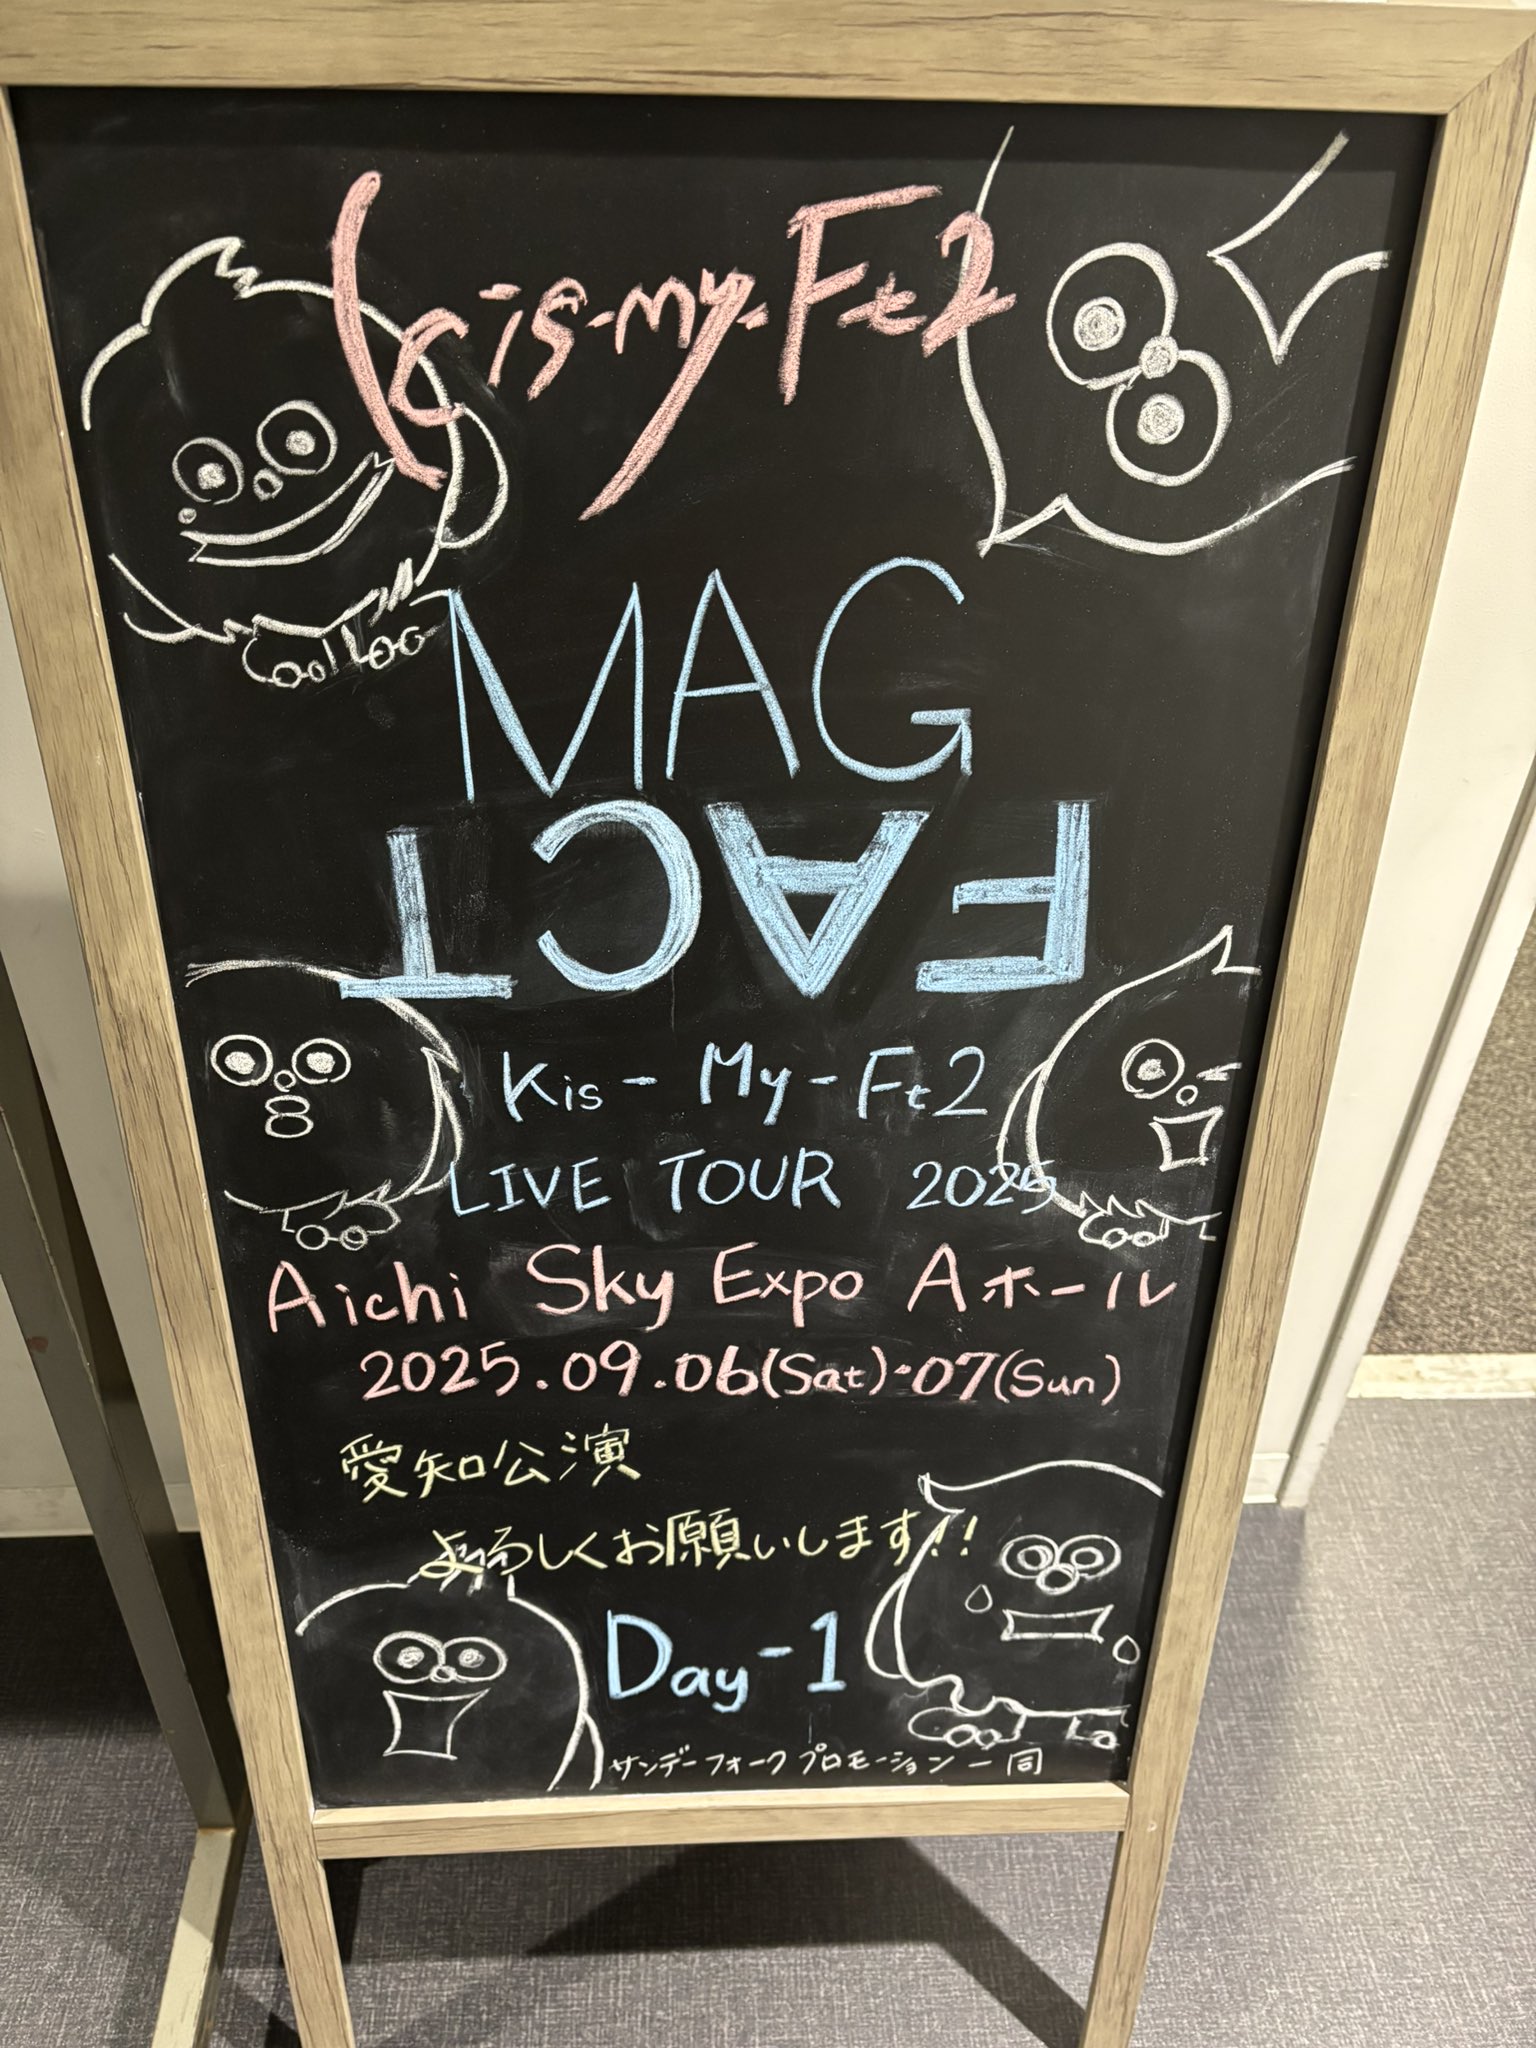 Kis-my-Ft2
MAG
FACT
Kis-My-Ft2
LIVE TOUR 2025
Aichi Sky Expo Aホール
2025.09.06(Sat)・07(Sun)
愛知公演
よろしくお願いします!!
Day-1
サンデーフォークプロモーション一同